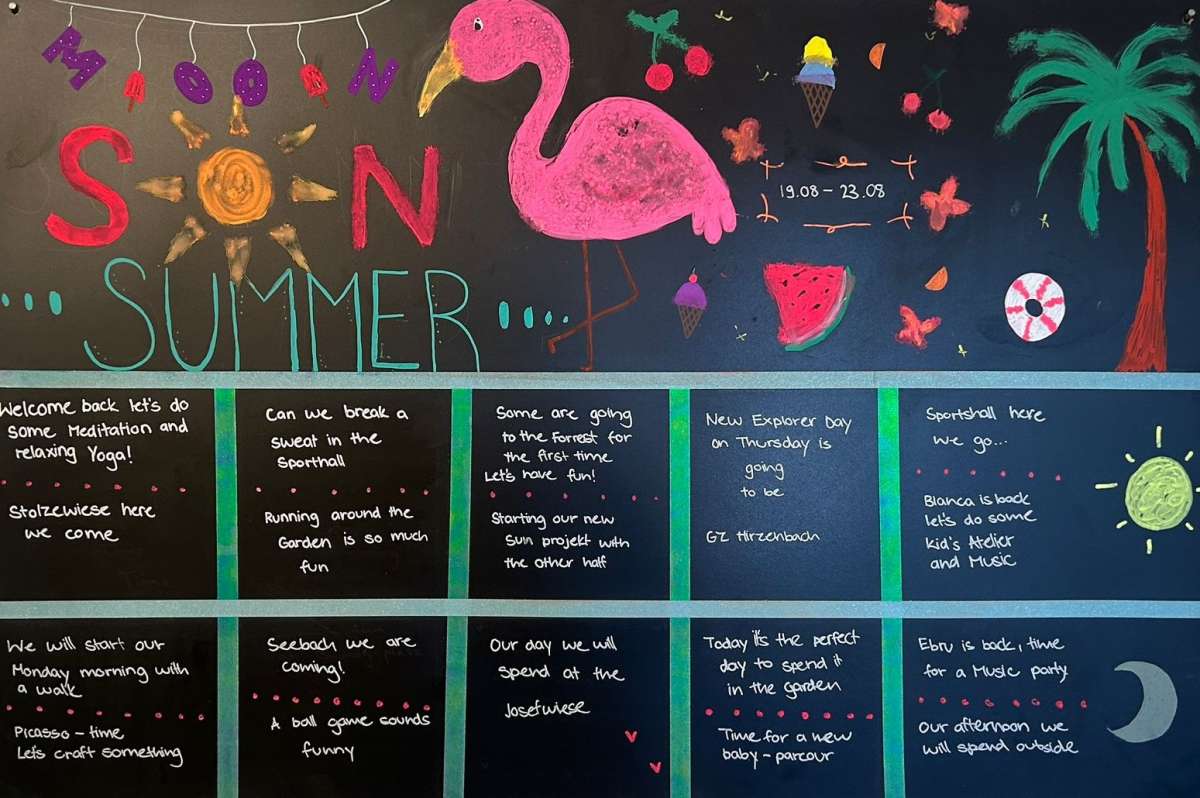 MOON
SUN
... SUMMER ....
19.08 – 23.08
Welcome back let's do
some Meditation and
relaxing Yoga!
Stolzewiese here
we come
Can we break a
sweat in the
Sporthall
Running around the
Garden is so much
fun
Some are going
to the Forrest for
the first time
Let's have fun!
Starting our new
Sun projekt with
the other half
New Explorer Day
on Thursday is
going
to be
GZ Hirzenbach
Sportshall here
we go...
Bianca is back
let's do some
kid's Atelier
and Music
We will start our
Monday morning with
a walk
Picasso – time
Let's craft something
Seebach we are
coming!
A ball game sounds
funny
Our day we will
spend at the
Josefwiese
Today it's the perfect
day to spend it
in the garden
Time for a new
baby – parcour
Ebru is back, time
for a Music party
Our afternoon we
will spend outside